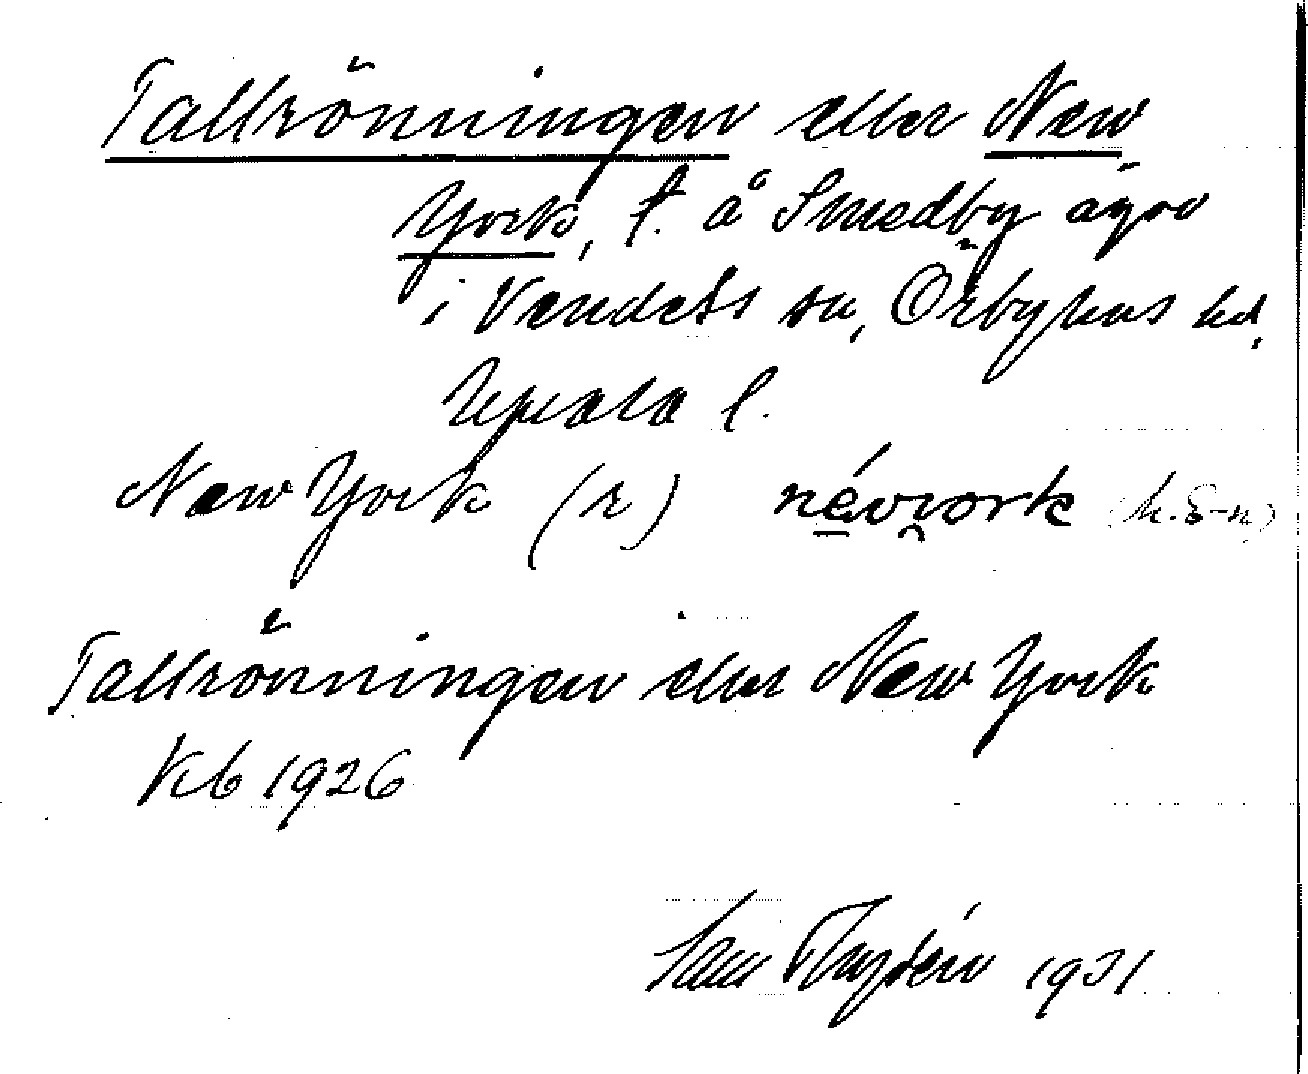 Tallrönningen eller New
York, t. å Smedby ägor
i Vendels sn, Örbyhus hd,
Upsala l.
New York (r) névi̯ork
Tallrönningen eller New York
Kb 1926
1931